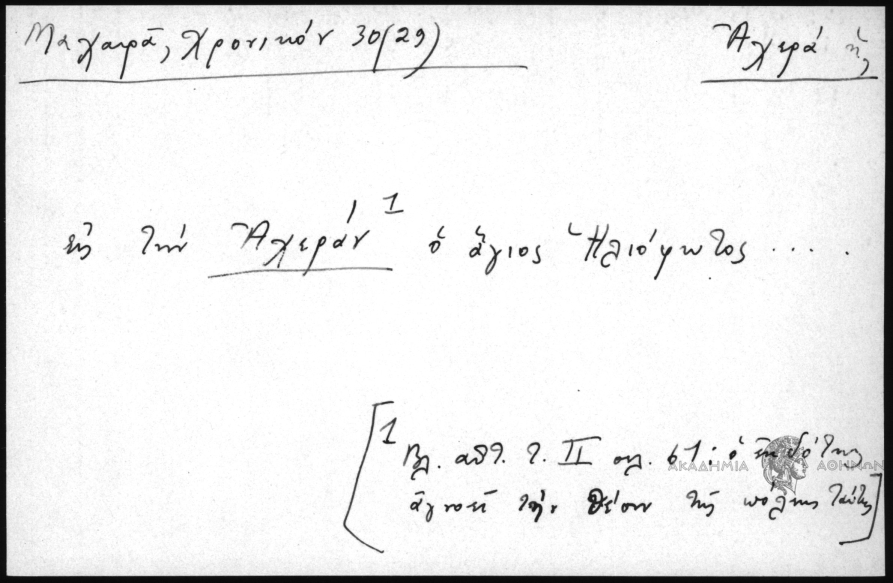 Μαχαιρᾶ, Χρονικόν 30(29)
Ἀχερά ἡ
εἰς τὴν Ἀχερὰν¹ ὁ ἅγιος Ἡλιόφωτος ....
[¹ Βλ. αὐτ. τ. II σελ. 61: ὁ ἐκδότης
ἀγνοεῖ τὴν θέσιν τῆς πόλης ταύτης]
ΑΚΑΔΗΜΙΑ ΑΘΗΝΩΝ